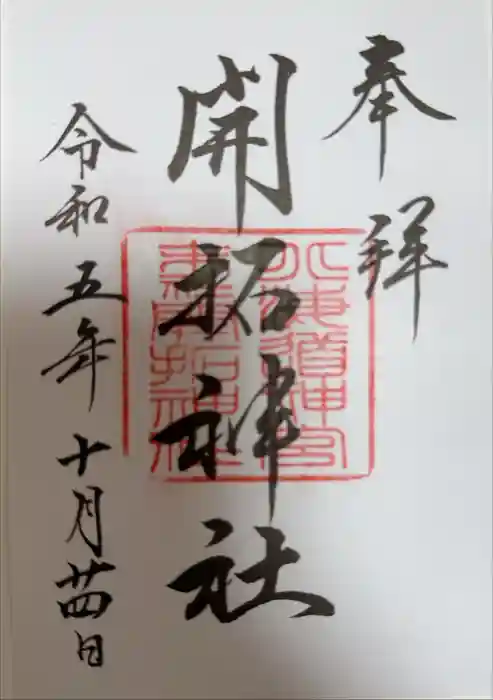 奉拝
開拓神社
北海道神宮
末社開拓神社
令和五年十月廿四日